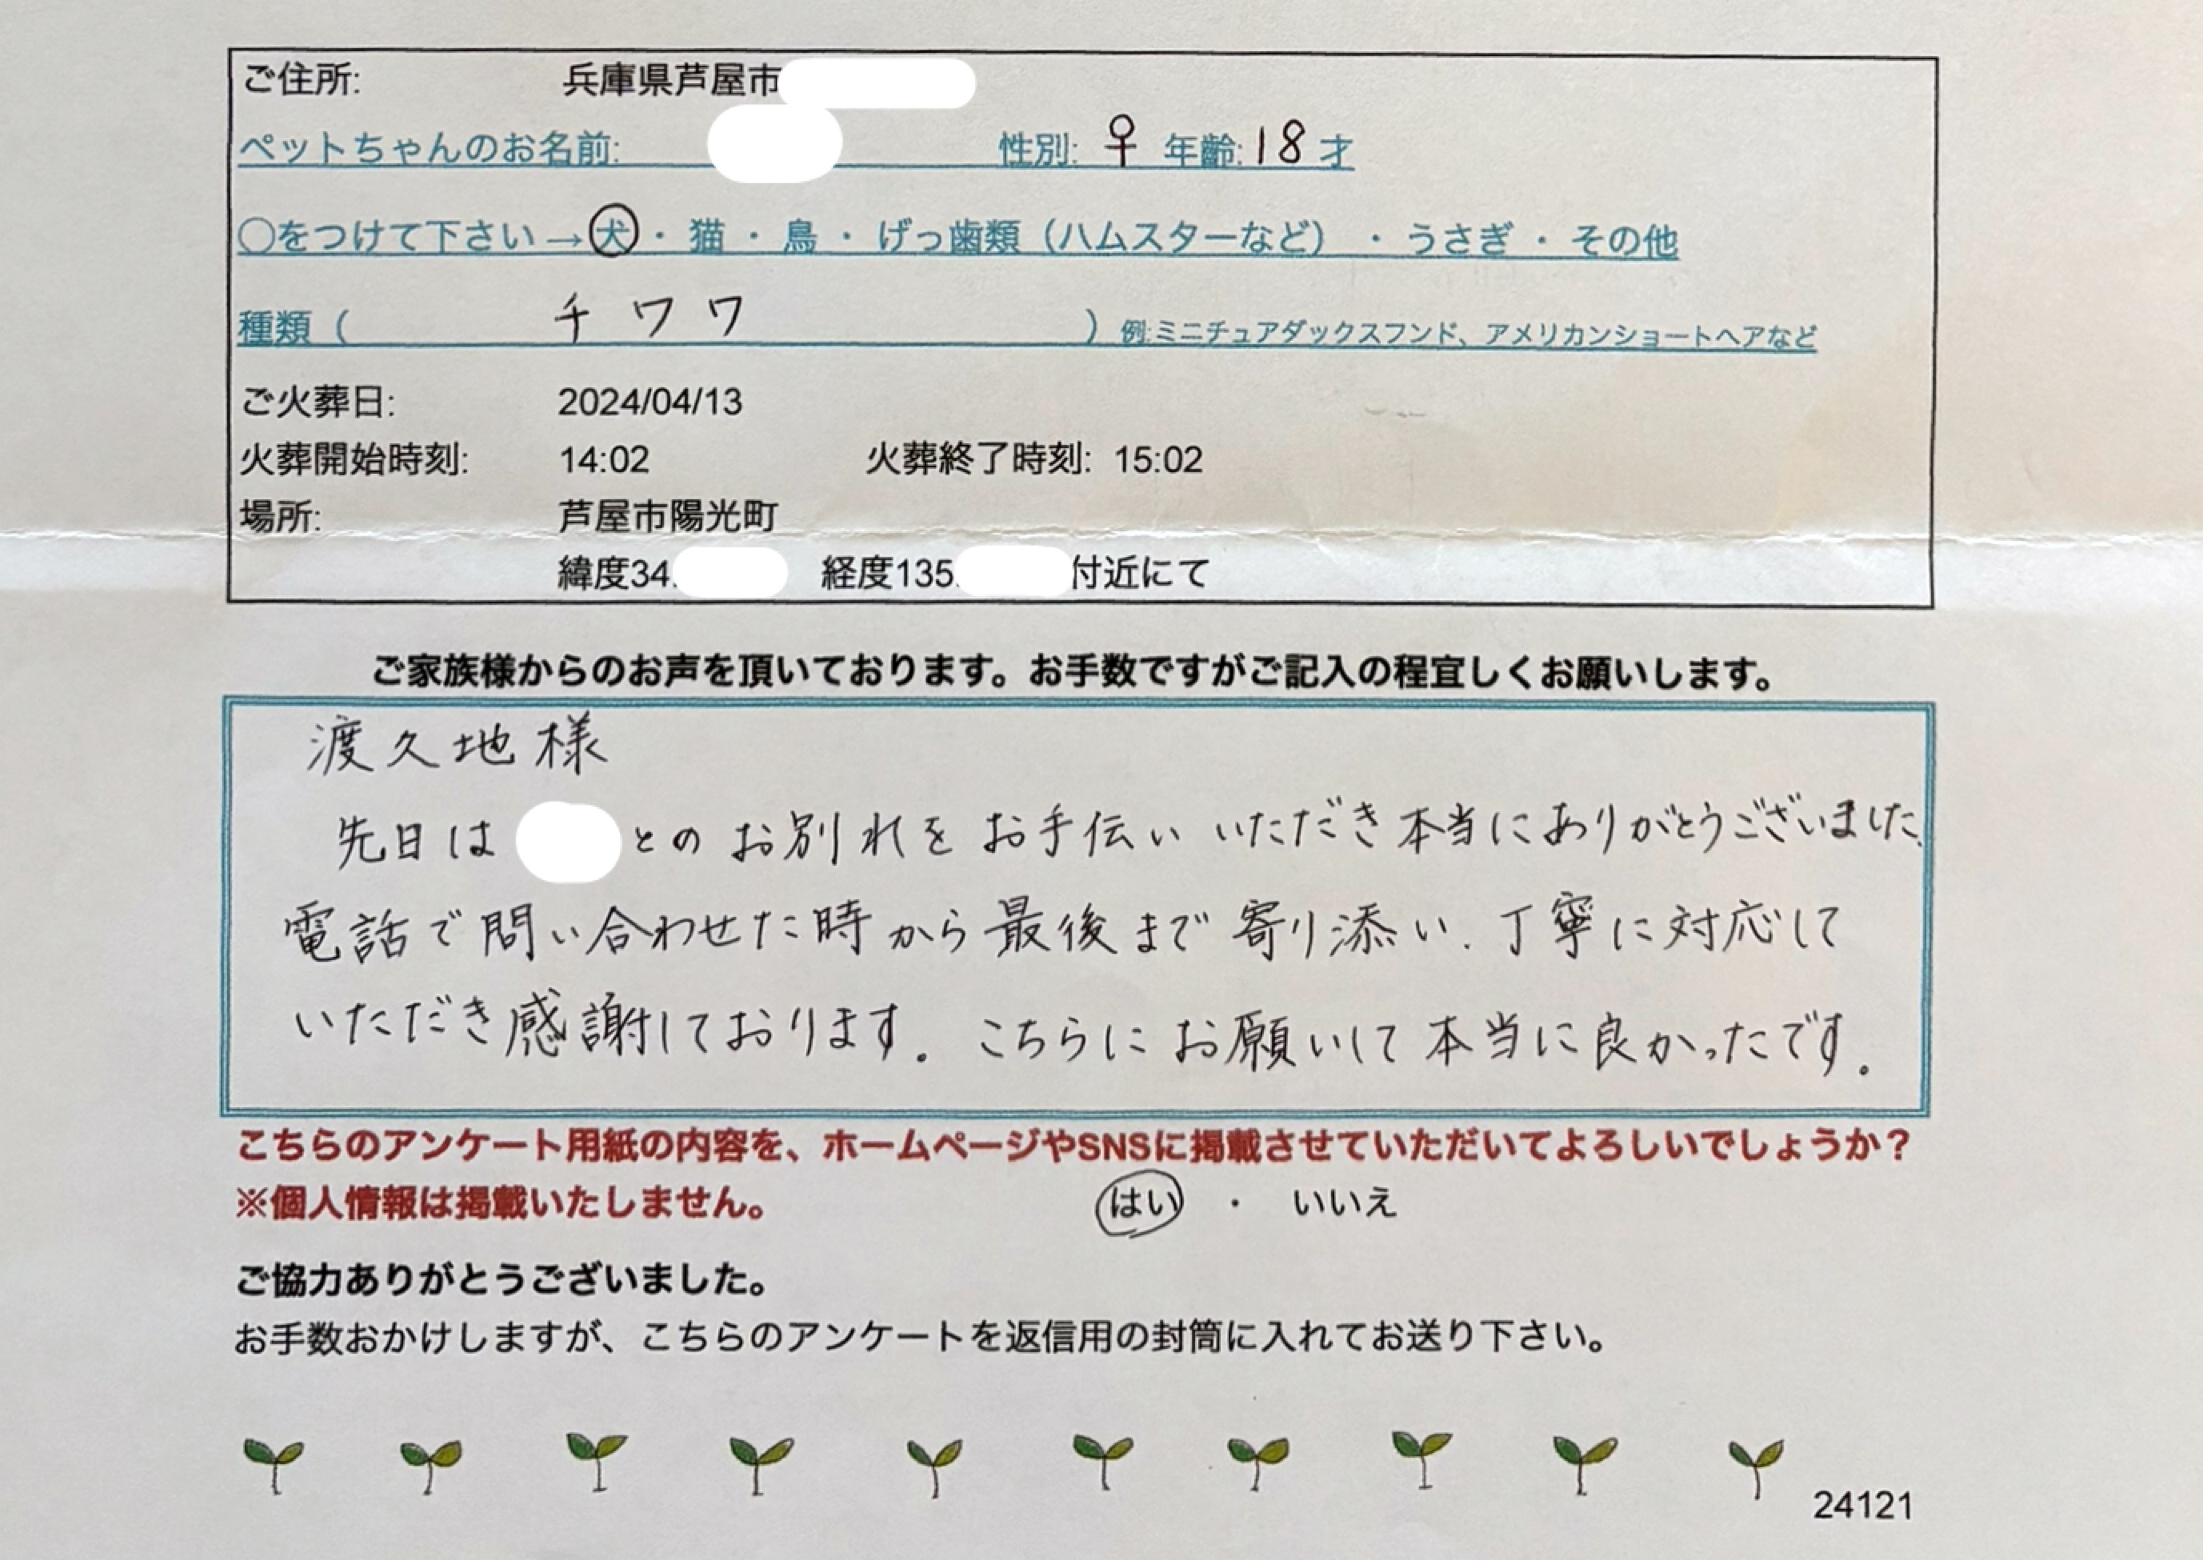 ご住所: 兵庫県芦屋市
ペットちゃんのお名前: 性別: ♀ 年齢: 18才
〇をつけて下さい→犬・猫・鳥・げっ歯類(ハムスターなど)・うさぎ・その他
種類( チワワ )例:ミニチュアダックスフンド、アメリカンショートヘアなど
ご火葬日: 2024/04/13
火葬開始時刻: 14:02 火葬終了時刻: 15:02
場所: 芦屋市陽光町
緯度34. 経度135. 付近にて
ご家族様からのお声を頂いております。お手数ですがご記入の程宜しくお願いします。
渡久地様
先日は とのお別れをお手伝いいただき本当にありがとうございました、
電話で問い合わせた時から最後まで寄り添い、丁寧に対応して
いただき感謝しております。こちらにお願いして本当に良かったです。
こちらのアンケート用紙の内容を、ホームページやSNSに掲載させていただいてよろしいでしょうか?
※個人情報は掲載いたしません。 はい ・ いいえ
ご協力ありがとうございました。
お手数おかけしますが、こちらのアンケートを返信用の封筒に入れてお送り下さい。
24121